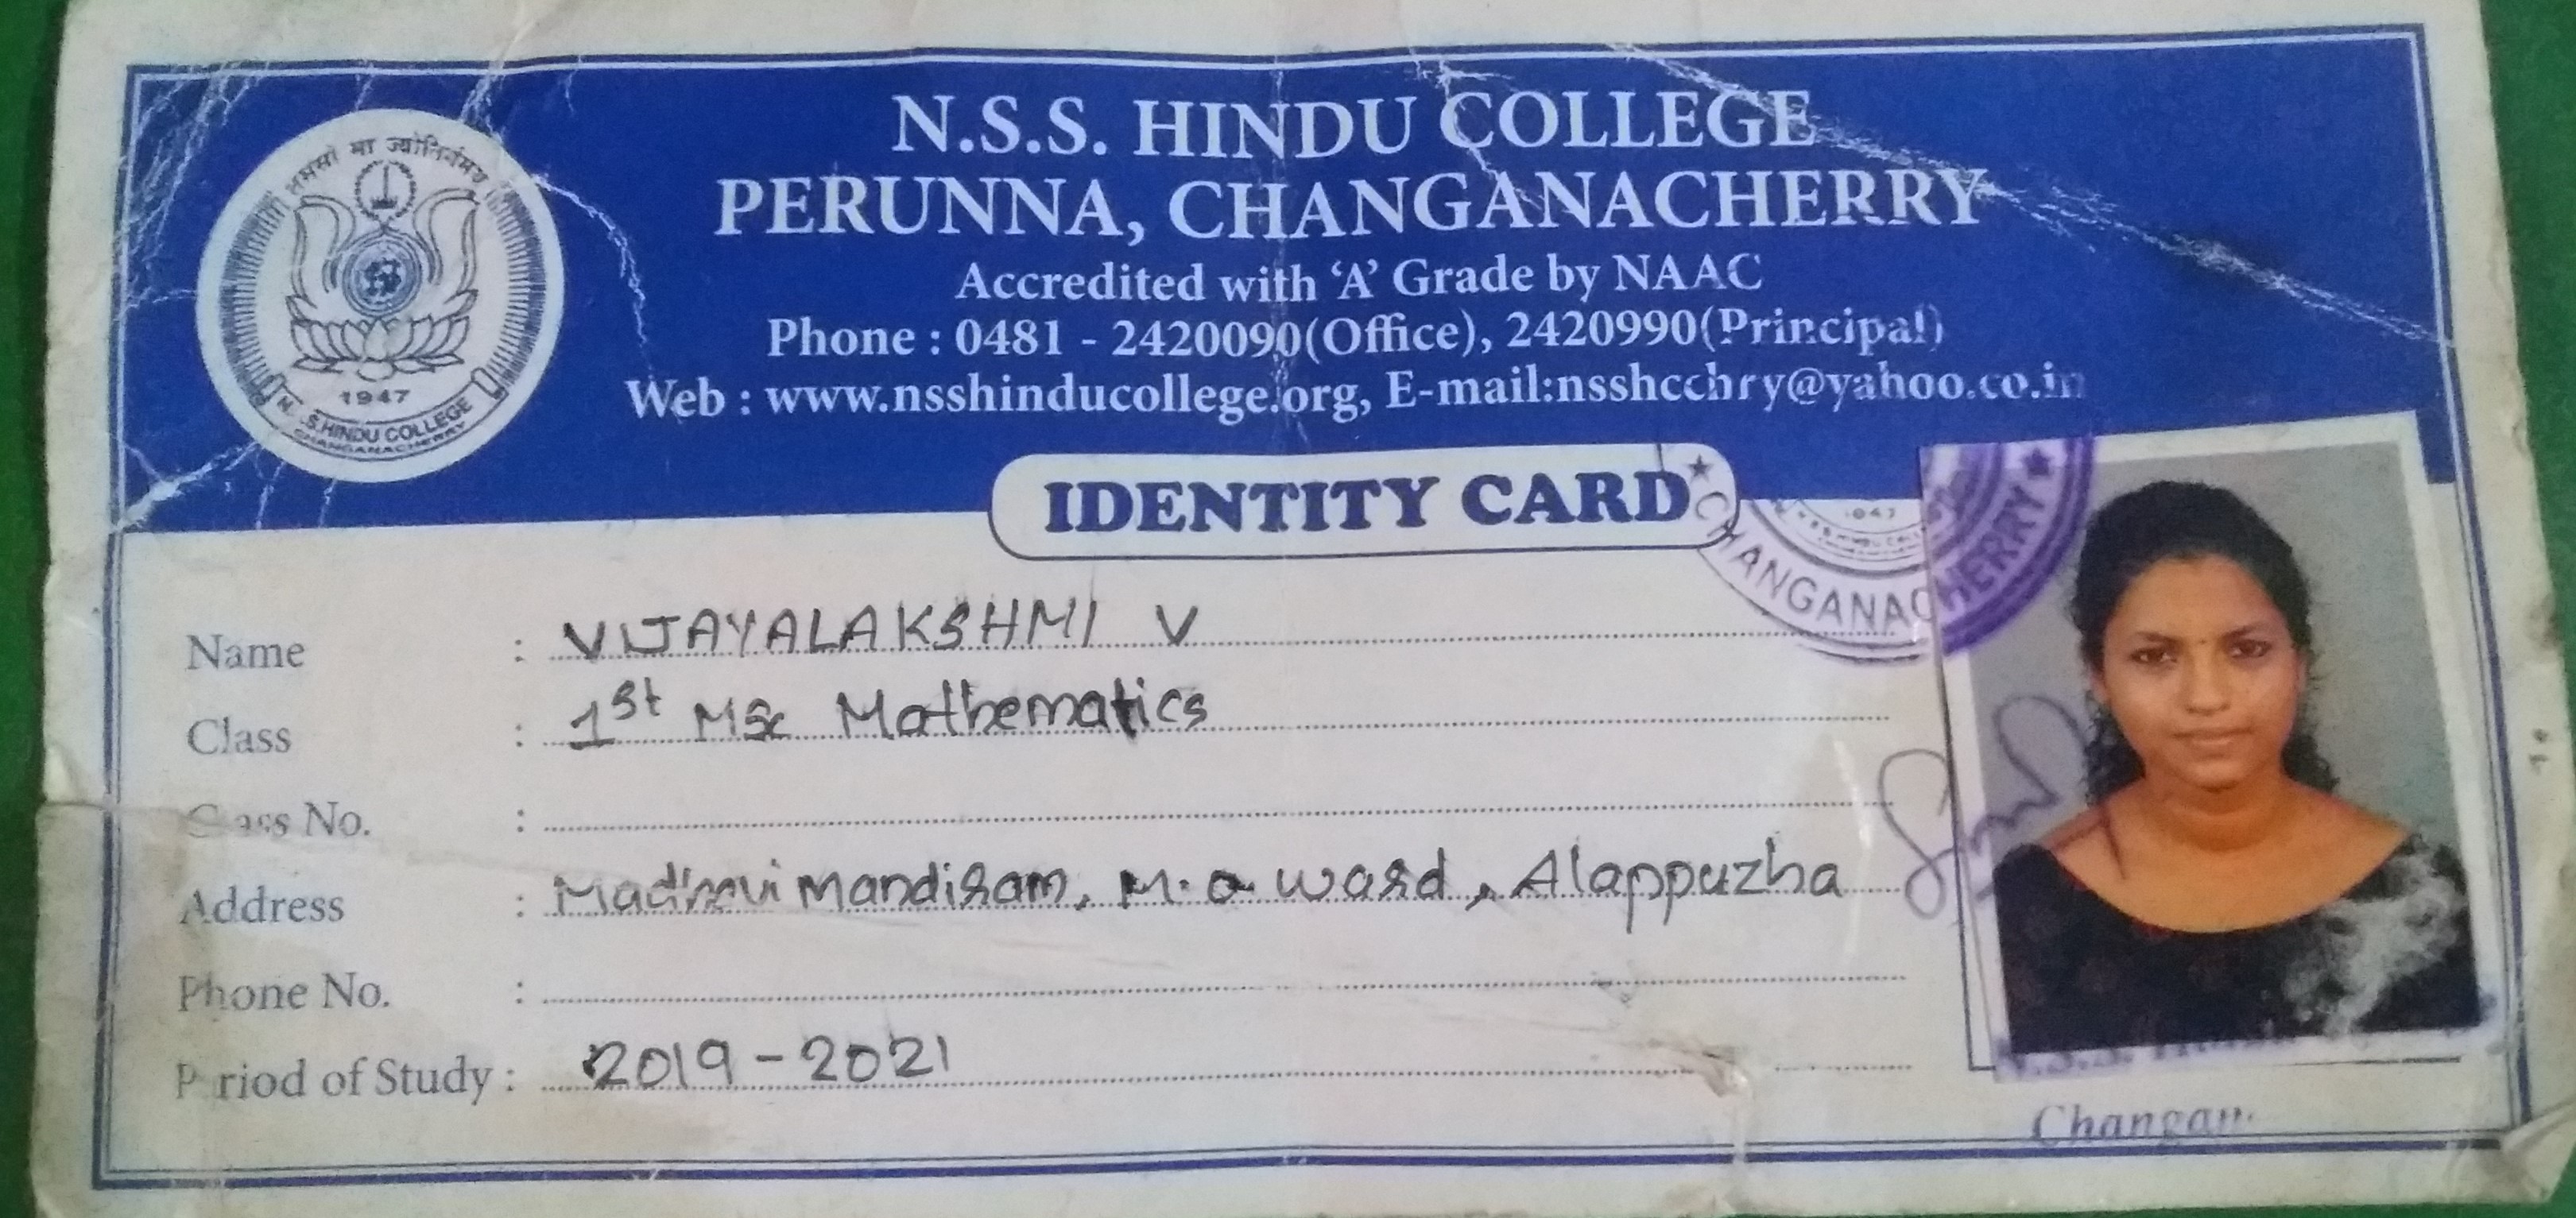 तमसो मा ज्योतिर्गमय
1947
N.S.S.HINDU COLLEGE
CHANGANACHERRY
N.S.S. HINDU COLLEGE
PERUNNA, CHANGANACHERRY
Accredited with ‘A’ Grade by NAAC
Phone : 0481 - 2420090(Office), 2420990(Principal)
Web : www.nsshinducollege.org, E-mail:nsshcchry@yahoo.co.in
IDENTITY CARD
CHANGANACHERRY
Name : VIJAYALAKSHMI V
Class : 1st MSc Mathematics
Class No. :
Address : Madhavi Mandiram, M.O ward, Alappuzha
Phone No. :
Period of Study : 2019 - 2021
N.S.S.